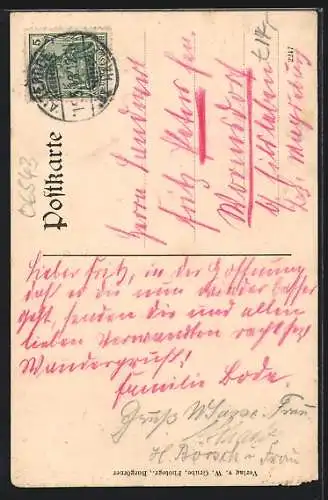 5
Postkarte
06543
2217
Herrn Landwirt
Fritz Peters sen.
Wormsdorf
b/ Eilsleben
Bz. Magdeburg
Lieber Fritz, in der Hoffnung
daß es dir nun wieder besser
geht, senden dir und allen
lieben Verwandten recht
Wandergruß!
Familie Bode.
Gruß Frau
H. Borsch u Frau
Verlag v. W. Grube, Photogr., Burgörner